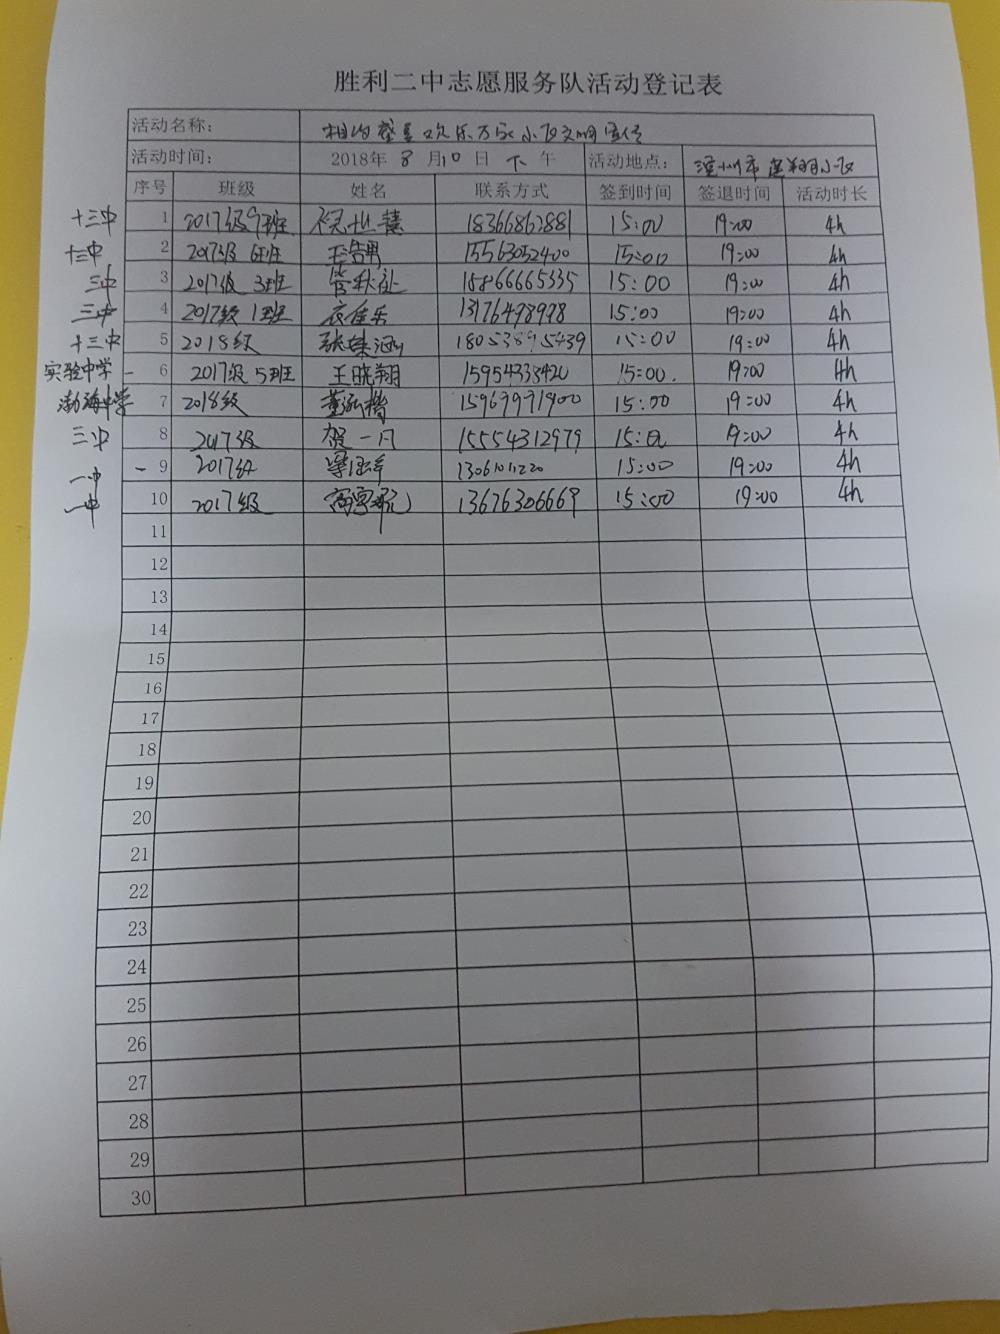 胜利二中志愿服务队活动登记表
活动名称： 相约 欢乐万家 小区文明宣传
活动时间： 2018年 8 月 10 日 下 午 活动地点： 滨州市 翔小区
序号 班级 姓名 联系方式 签到时间 签退时间 活动时长
十三中 1 2017级9班 18366863881 15:00 19:00 4h
十三中 2 2017级 6班 15563052400 15:00 19:00 4h
三中 3 2017级 3班 管秋祉 15866665335 15:00 19:00 4h
三中 4 2017级 1班 衣佳乐 13176498998 15:00 19:00 4h
十三中 5 2018级 张姝涵 18053895439 15:00 19:00 4h
实验中学 - 6 2017级 5班 王晓翔 15954338420 15:00. 19:00 4h
渤海中学 7 2018级 董泓楷 15969991900 15:00 19:00 4h
三中 8 2017级 贺一凡 15554312979 15:00 19:00 4h
一中 - 9 2017级 13061011220 15:00 19:00 4h
一中 10 2017级 13676306669 15:00 19:00 4h
11
12
13
14
15
16
17
18
19
20
21
22
23
24
25
26
27
28
29
30